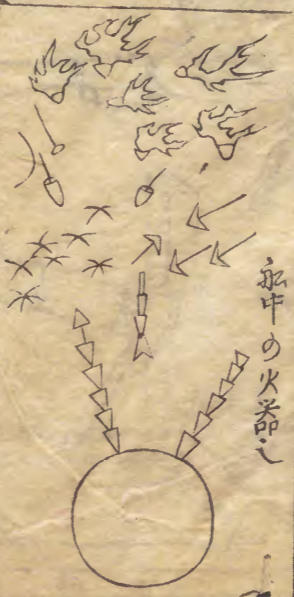 船中の火器也